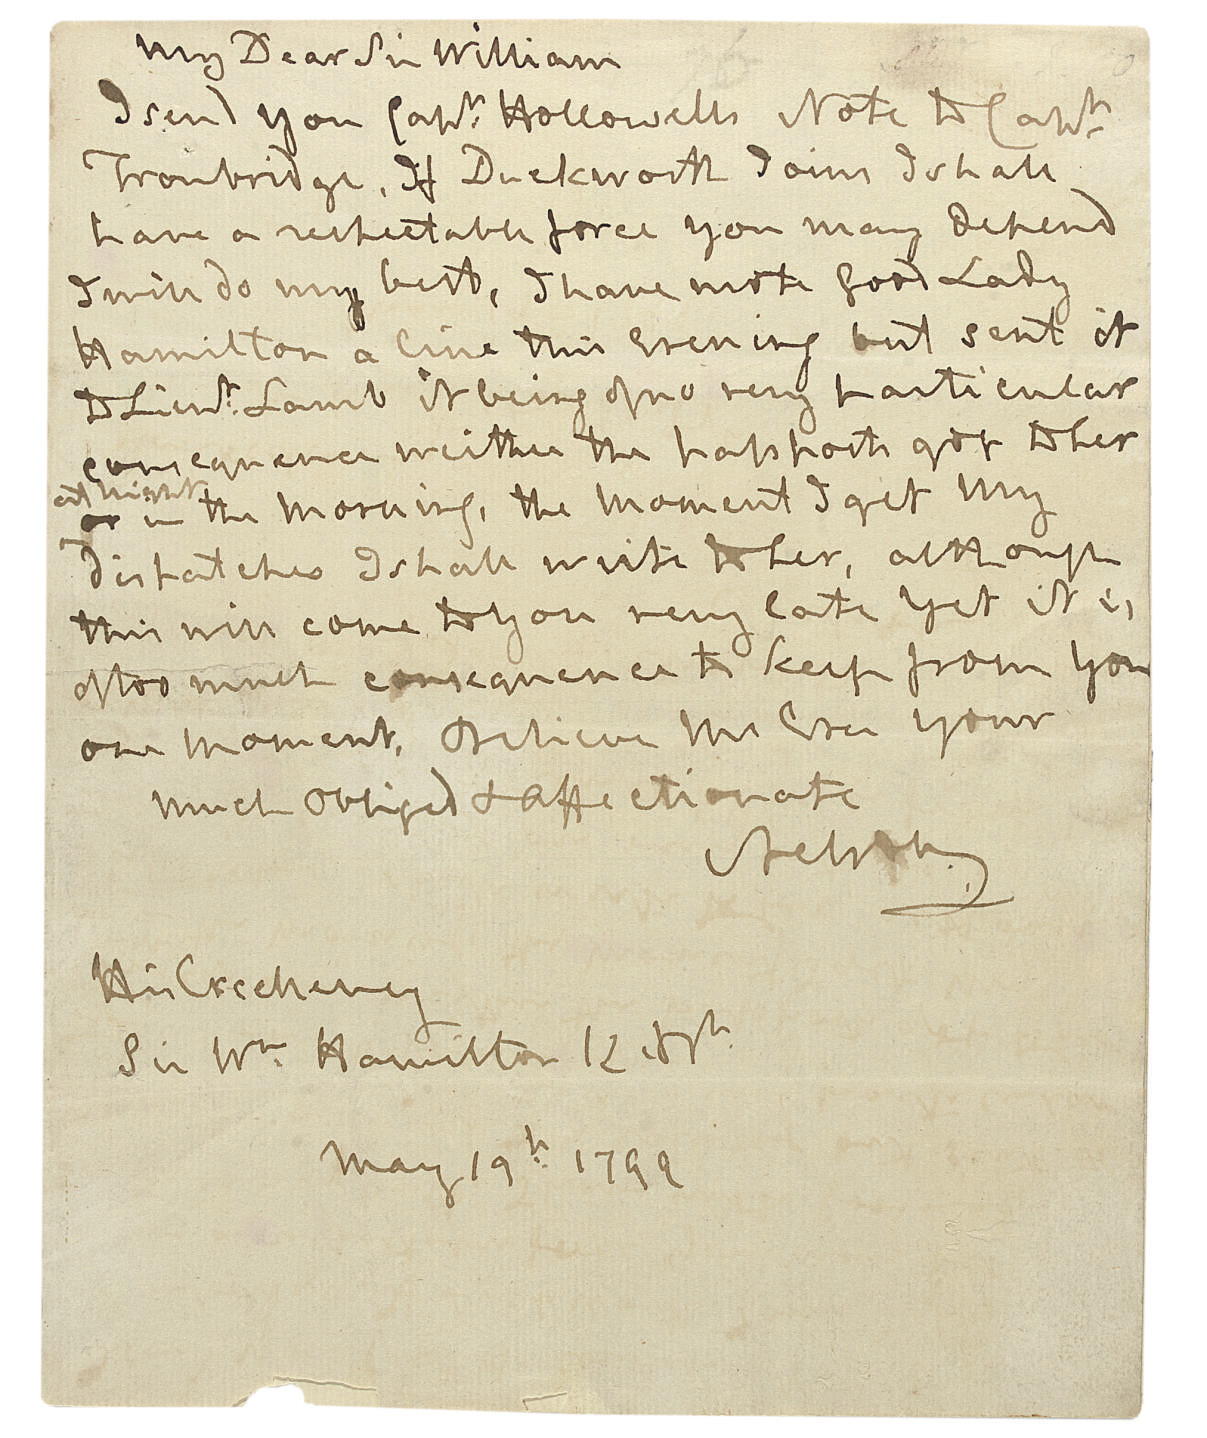 My Dear Sir William
I send you Capt. Hollowells Note to Capt.
Troubridge, If Duckworth Joins I shall
have a respectable force you may depend
I will do my best, I have wrote good Lady
Hamilton a line this Evening but sent it
to Lieut. Lamb it being of no very particular
consequence weither the passports got to her
at night
or in the Morning, the Moment I get My
dispatches I shall write to her, although
this will come to you very late Yet it is
of too much consequence to keep from You
one Moment, Believe Me Ever Your
Much Obliged & Affectionate
Nelson
His Excellency
Sir Wm. Hamilton K
May 19th. 1799